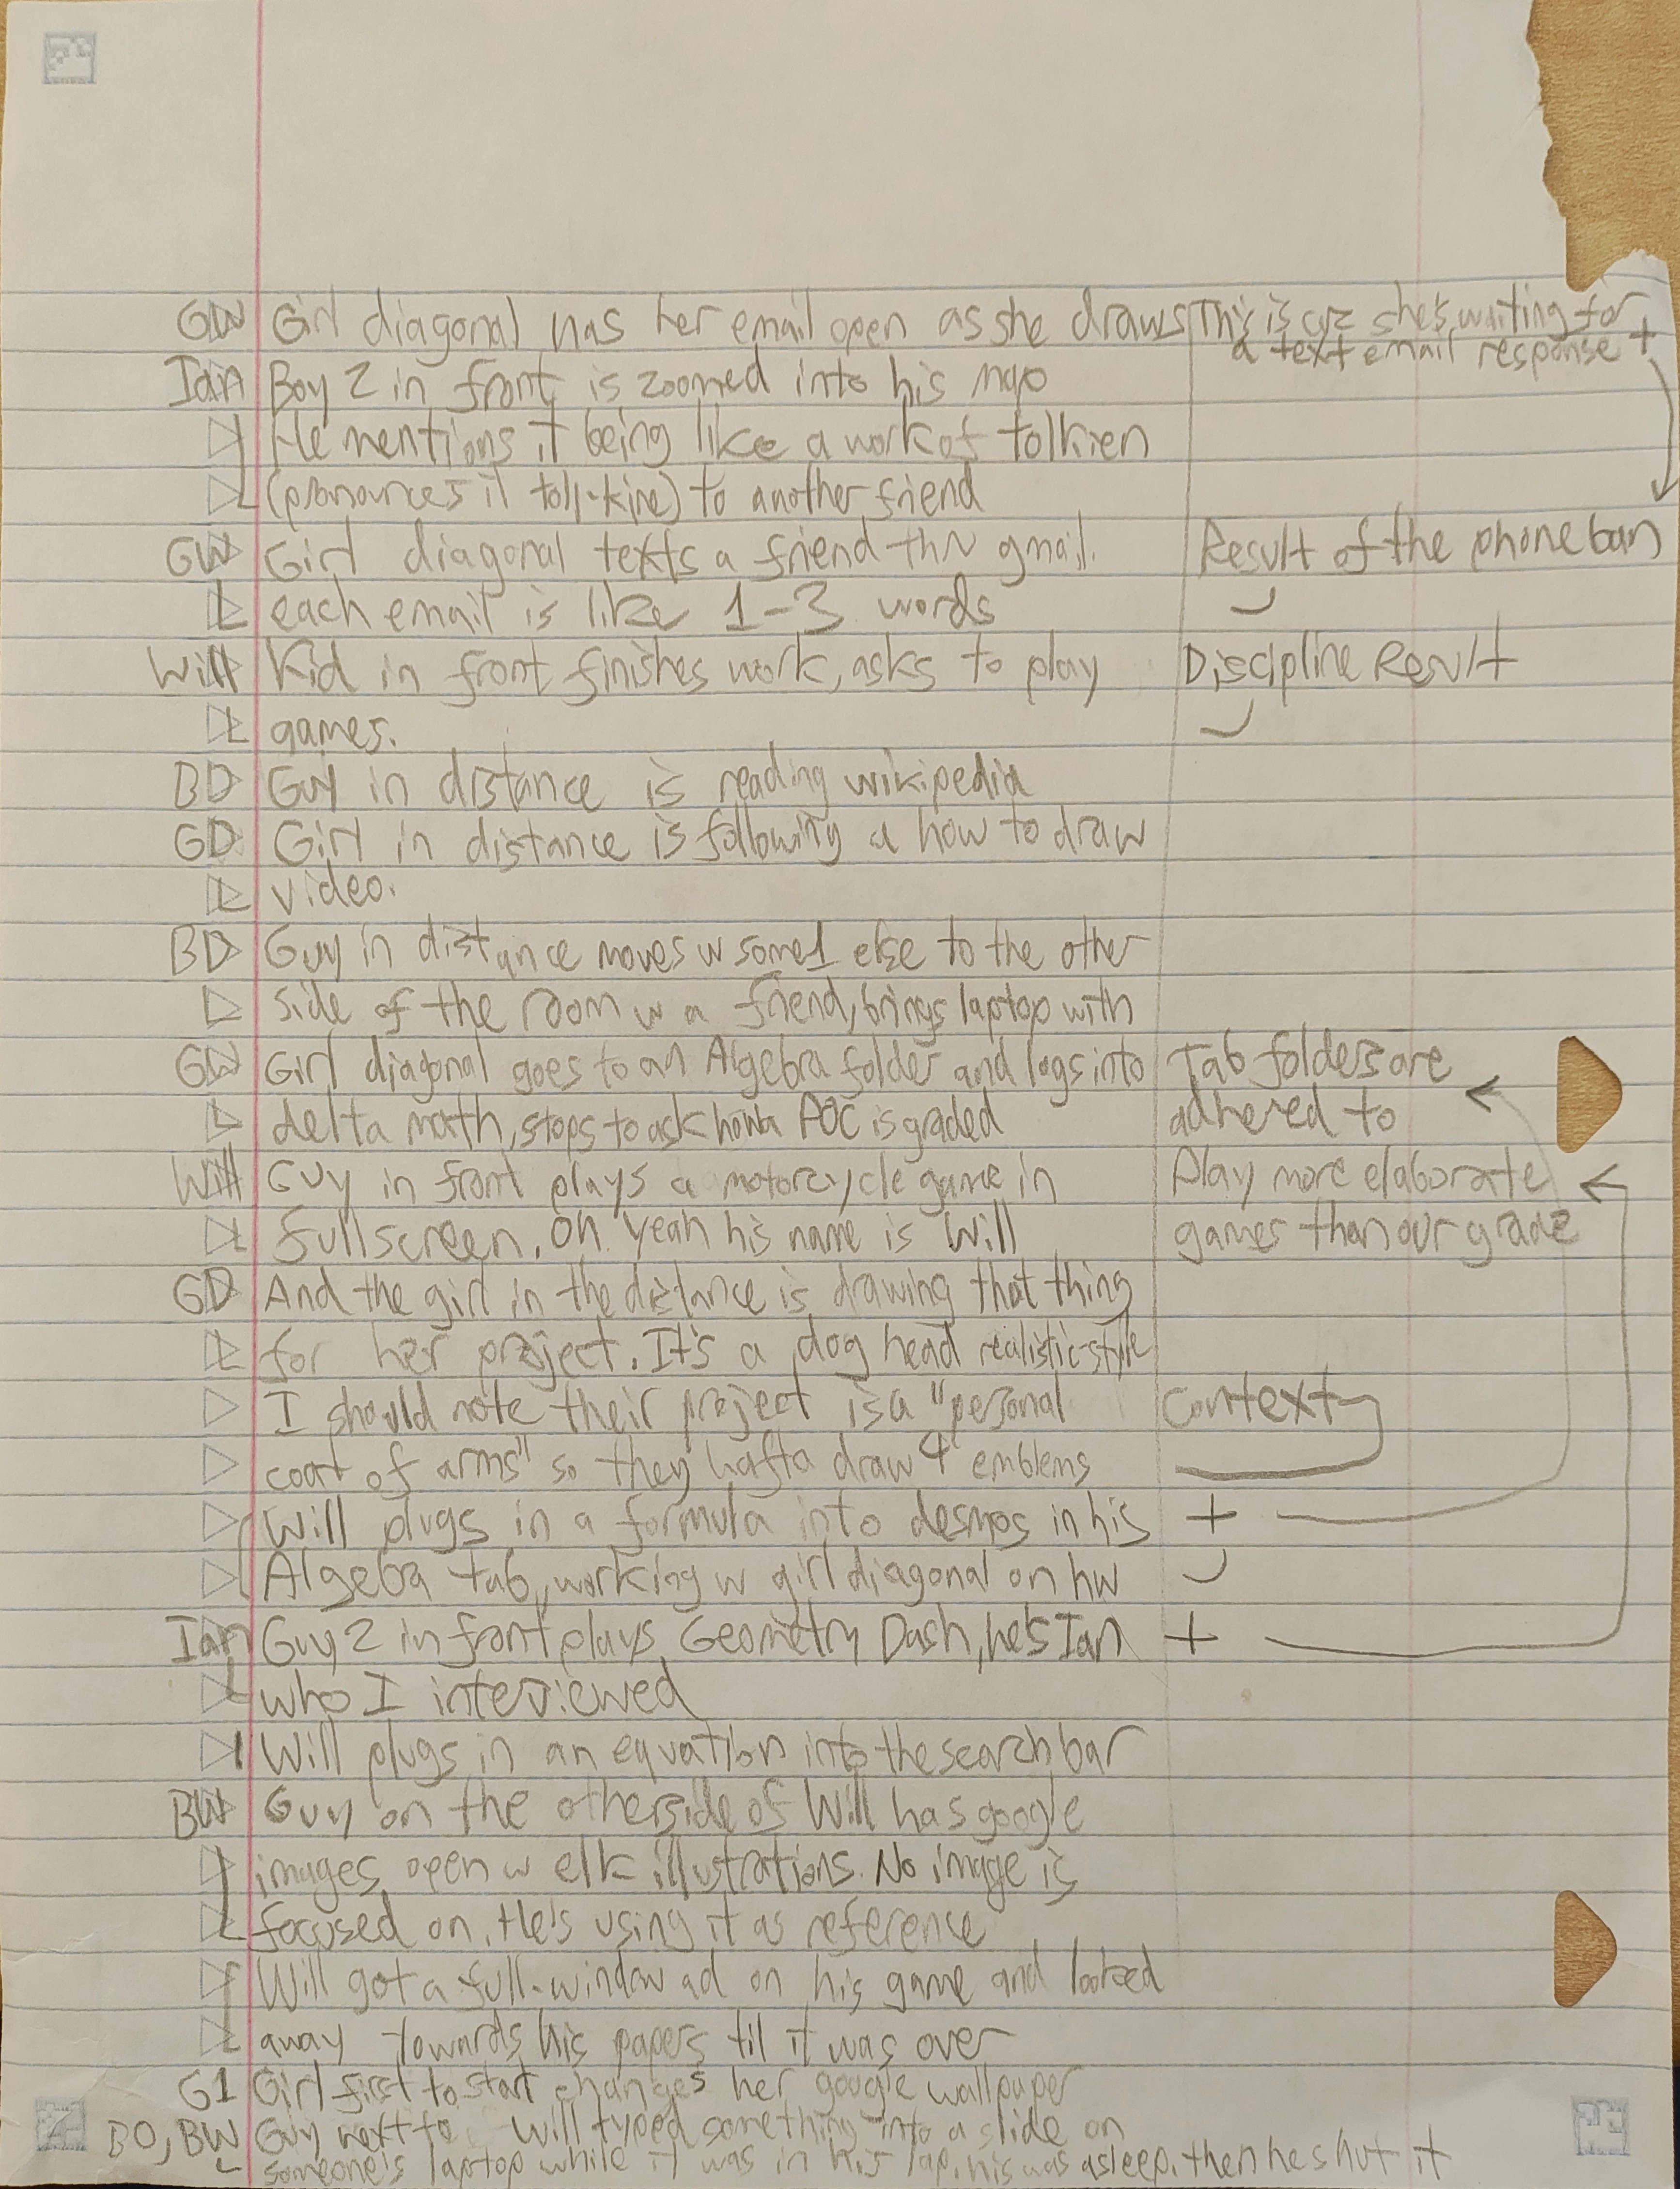 GW Girl diagonal has her email open as she draws This is cuz she's waiting for
a text email response +
Ian Boy 2 in front is zoomed into his map
He mentions it being like a work of tolkien
(pronounces it toll-kine) to another friend
GW Girl diagonal texts a friend thru gmail. Result of the phone ban
each email is like 1-3 words
Will Kid in front finishes work, asks to play Discipline Result
games.
BD Guy in distance is reading wikipedia
GD Girl in distance is following a how to draw
video.
BD Guy in distance moves w some1 else to the other
side of the room w a friend, brings laptop with
GW Girl diagonal goes to an Algebra folder and logs into Tab folders are
delta math, stops to ask how a AOC is graded adhered to
Will Guy in front plays a motorcycle game in Play more elaborate
fullscreen. Oh yeah his name is Will games than our grade
GD And the girl in the distance is drawing that thing
for her project. It's a dog head realistic-style
I should note their project is a "personal Context
coat of arms" so they hafta draw 4 emblems
Will plugs in a formula into desmos in his +
Algebra tab, working w girl diagonal on hw
Ian Guy 2 in front plays Geometry Dash, he's Ian +
who I interviewed
Will plugs in an equation into the search bar
BW Guy on the otherside of Will has google
images open w elk illustrations. No image is
focused on. He's using it as reference
Will got a full-window ad on his game and looked
away towards his papers til it was over
G1 Girl first to start changes her google wallpaper
BO, BW Guy next to Will typed something into a slide on
someone's laptop while it was in his lap. his was asleep. then he shut it